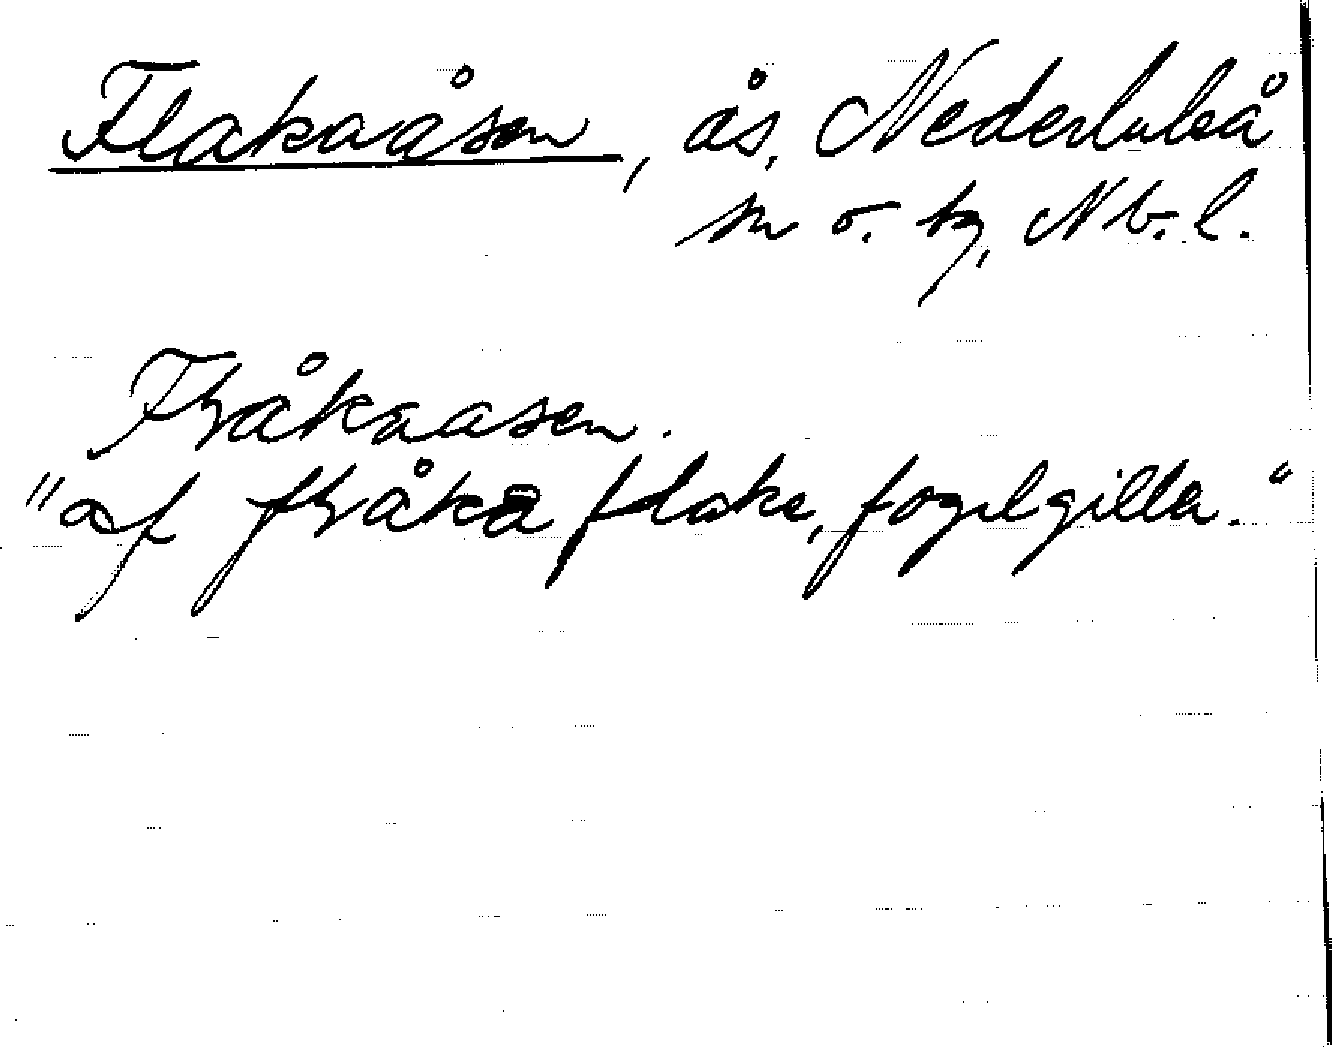 Flakaåsen, ås, Nederluleå
sn o. tg, Nb. l.
Fhråkaasen.
"af fhråka flake, fogelgiller."